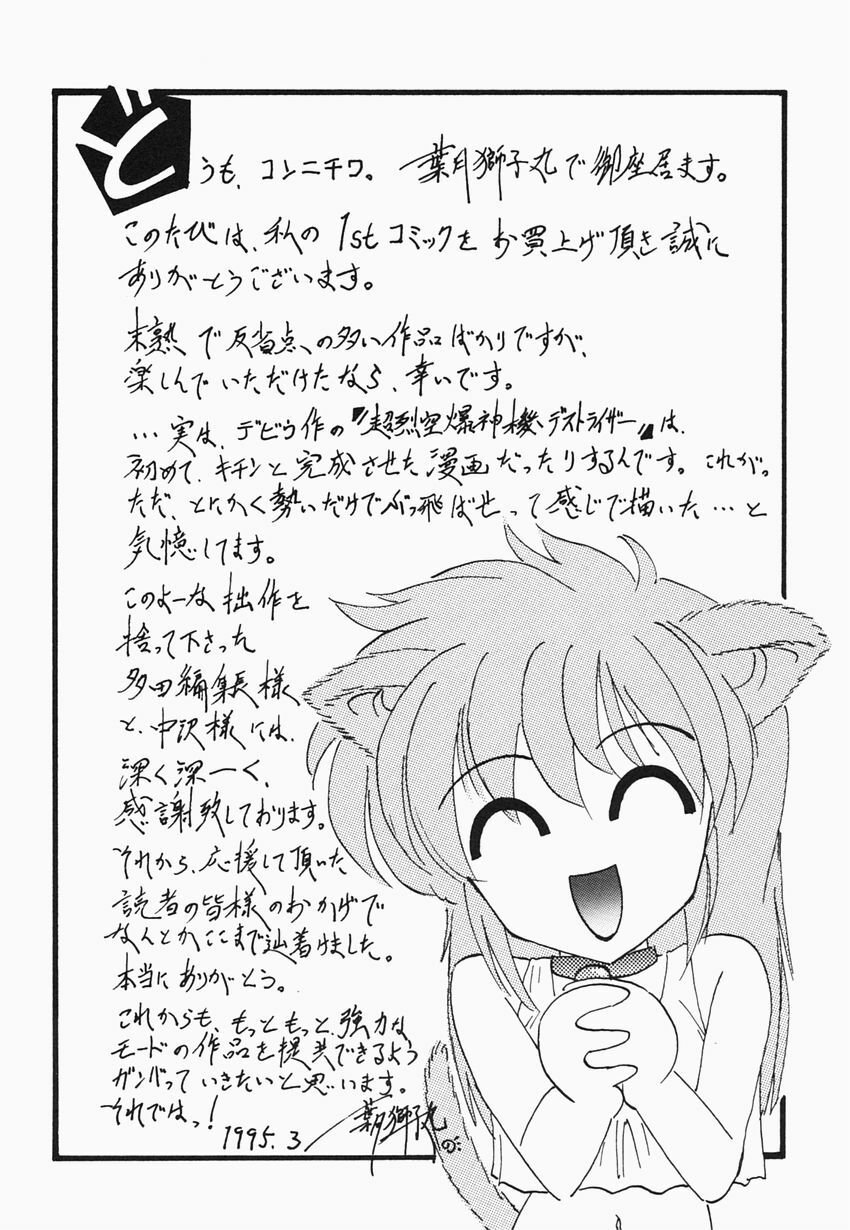 どうも、コンニチワ。 葉月獅子丸で御座居ます。
このたびは、私の1stコミックをお買上げ頂き誠に
ありがとうございます。
末熟で反省点の多い作品ばかりですが、
楽しんでいただけたなら、幸いです。
…実は、デビウ作の『超烈空爆神機デストライザー』は、
初めて、キチンと完成させた漫画だったりするんです。これが。
ただ、とにかく勢いだけでぶっ飛ばせって感じで描いた…と
気憶してます。
このよーな拙作を
捨って下さった
多田編集長様
と、中沢様には、
深く深ーく、
感謝致しております。
それから、応援して頂いた
読者の皆様のおかげで
なんとかここまで辿着けました。
本当にありがとう。
これからも、もっともっと、強力な
モードの作品を提供できるよう
ガンバっていきたいと思います。
それではっ!
1995.3 葉月獅子丸